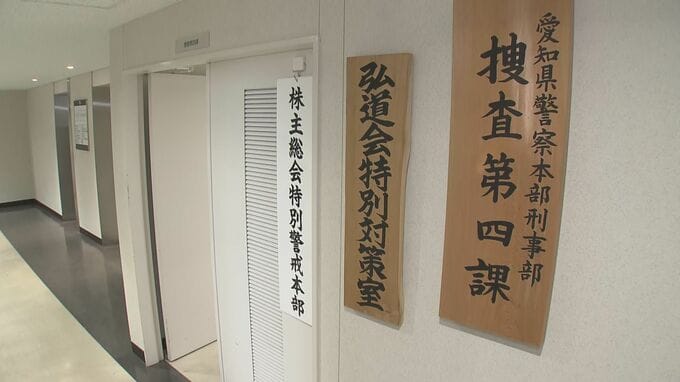 愛知県警察本部刑事部
捜査第四課
弘道会特別対策室
株主総会特別警戒本部